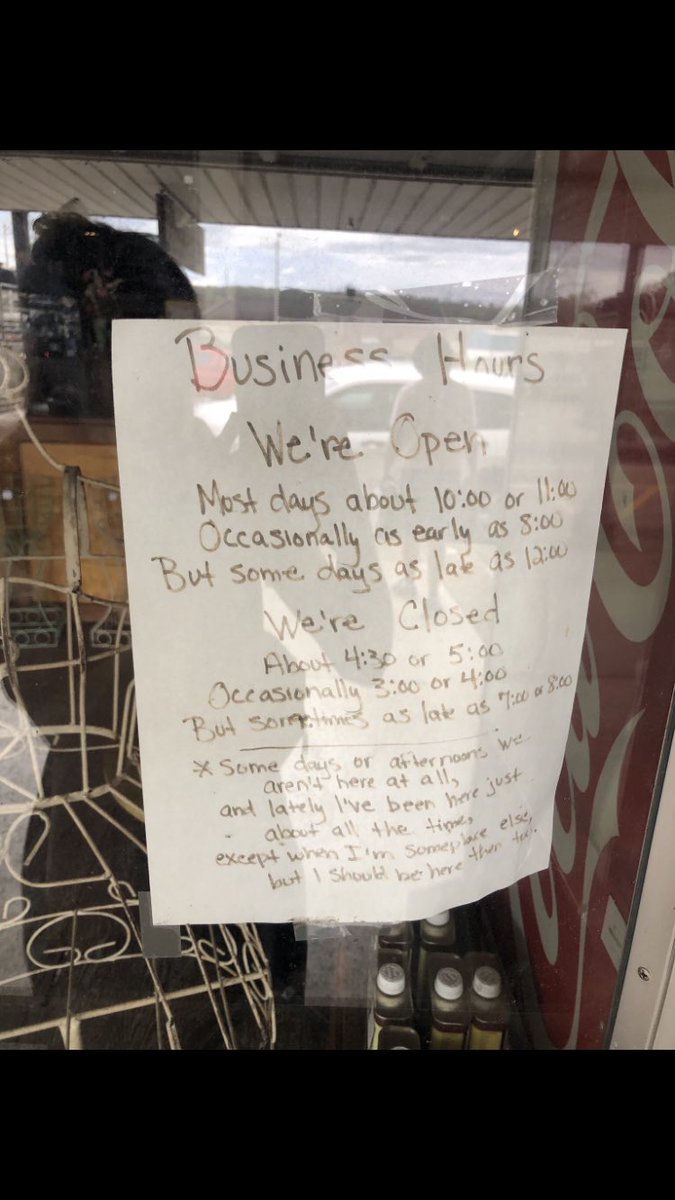 Business Hours
We're Open
Most days about 10:00 or 11:00
Occasionally as early as 8:00
But some days as late as 12:00
We're Closed
About 4:30 or 5:00
Occasionally 3:00 or 4:00
But sometimes as late as 7:00 or 8:00
* Some days or afternoons we
aren't here at all,
and lately I've been here just
about all the time,
except when I'm someplace else,
but I should be here then too.